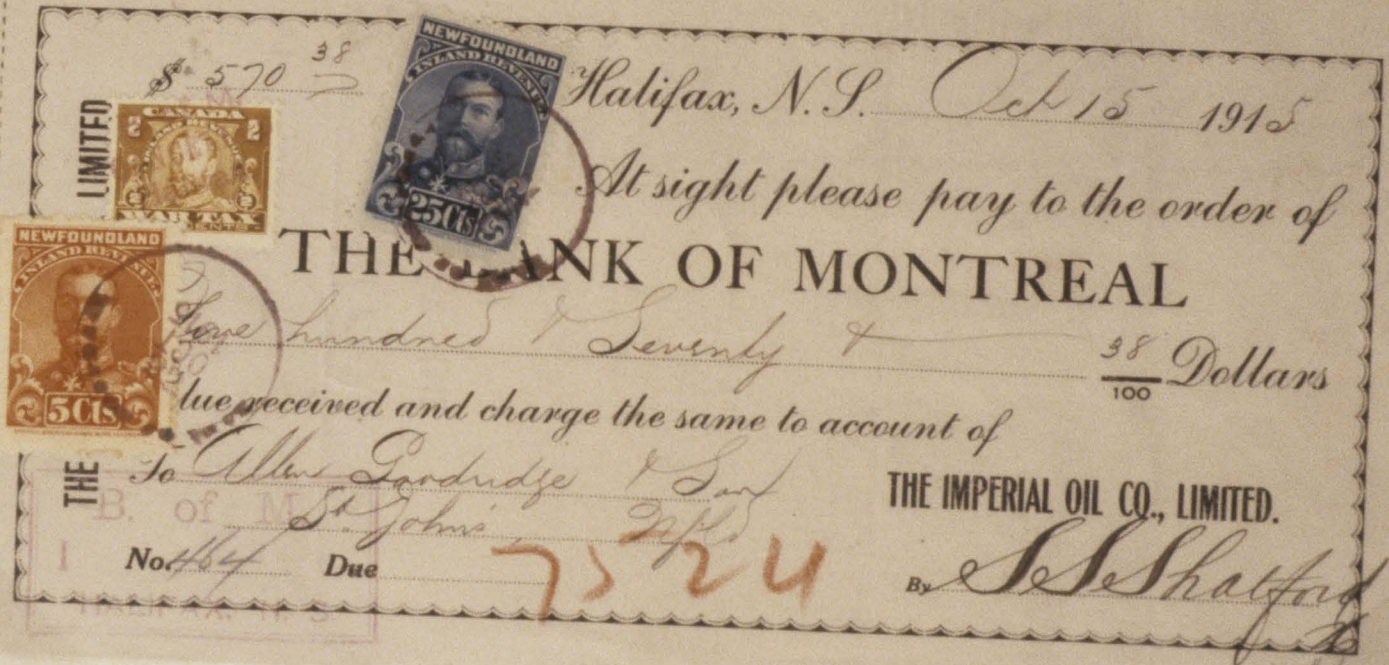 $ 570 38
Halifax, N.S. Oct 15 1915
At sight please pay to the order of
THE BANK OF MONTREAL
Five hundred & Seventy & 38/100 Dollars
lue received and charge the same to account of
To Allan Goodridge & Sons
St. John's Nfld
THE IMPERIAL OIL CO., LIMITED.
No. 464 Due
7524
By S S Shatford
LIMITED
THE
CANADA
2 2
INLAND REVENUE
WAR TAX
CENTS
NEWFOUNDLAND
INLAND REVENUE
25Cts
NEWFOUNDLAND
INLAND REVENUE
5Cts
B. of M
HALIFAX, N. S.